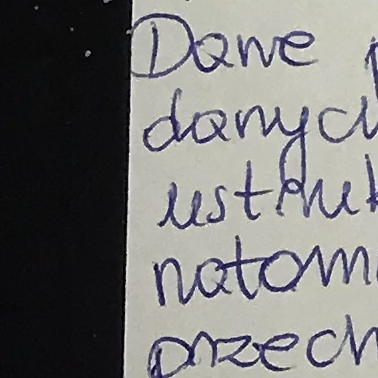 Dane p
danych
ustruk
natomi
przech